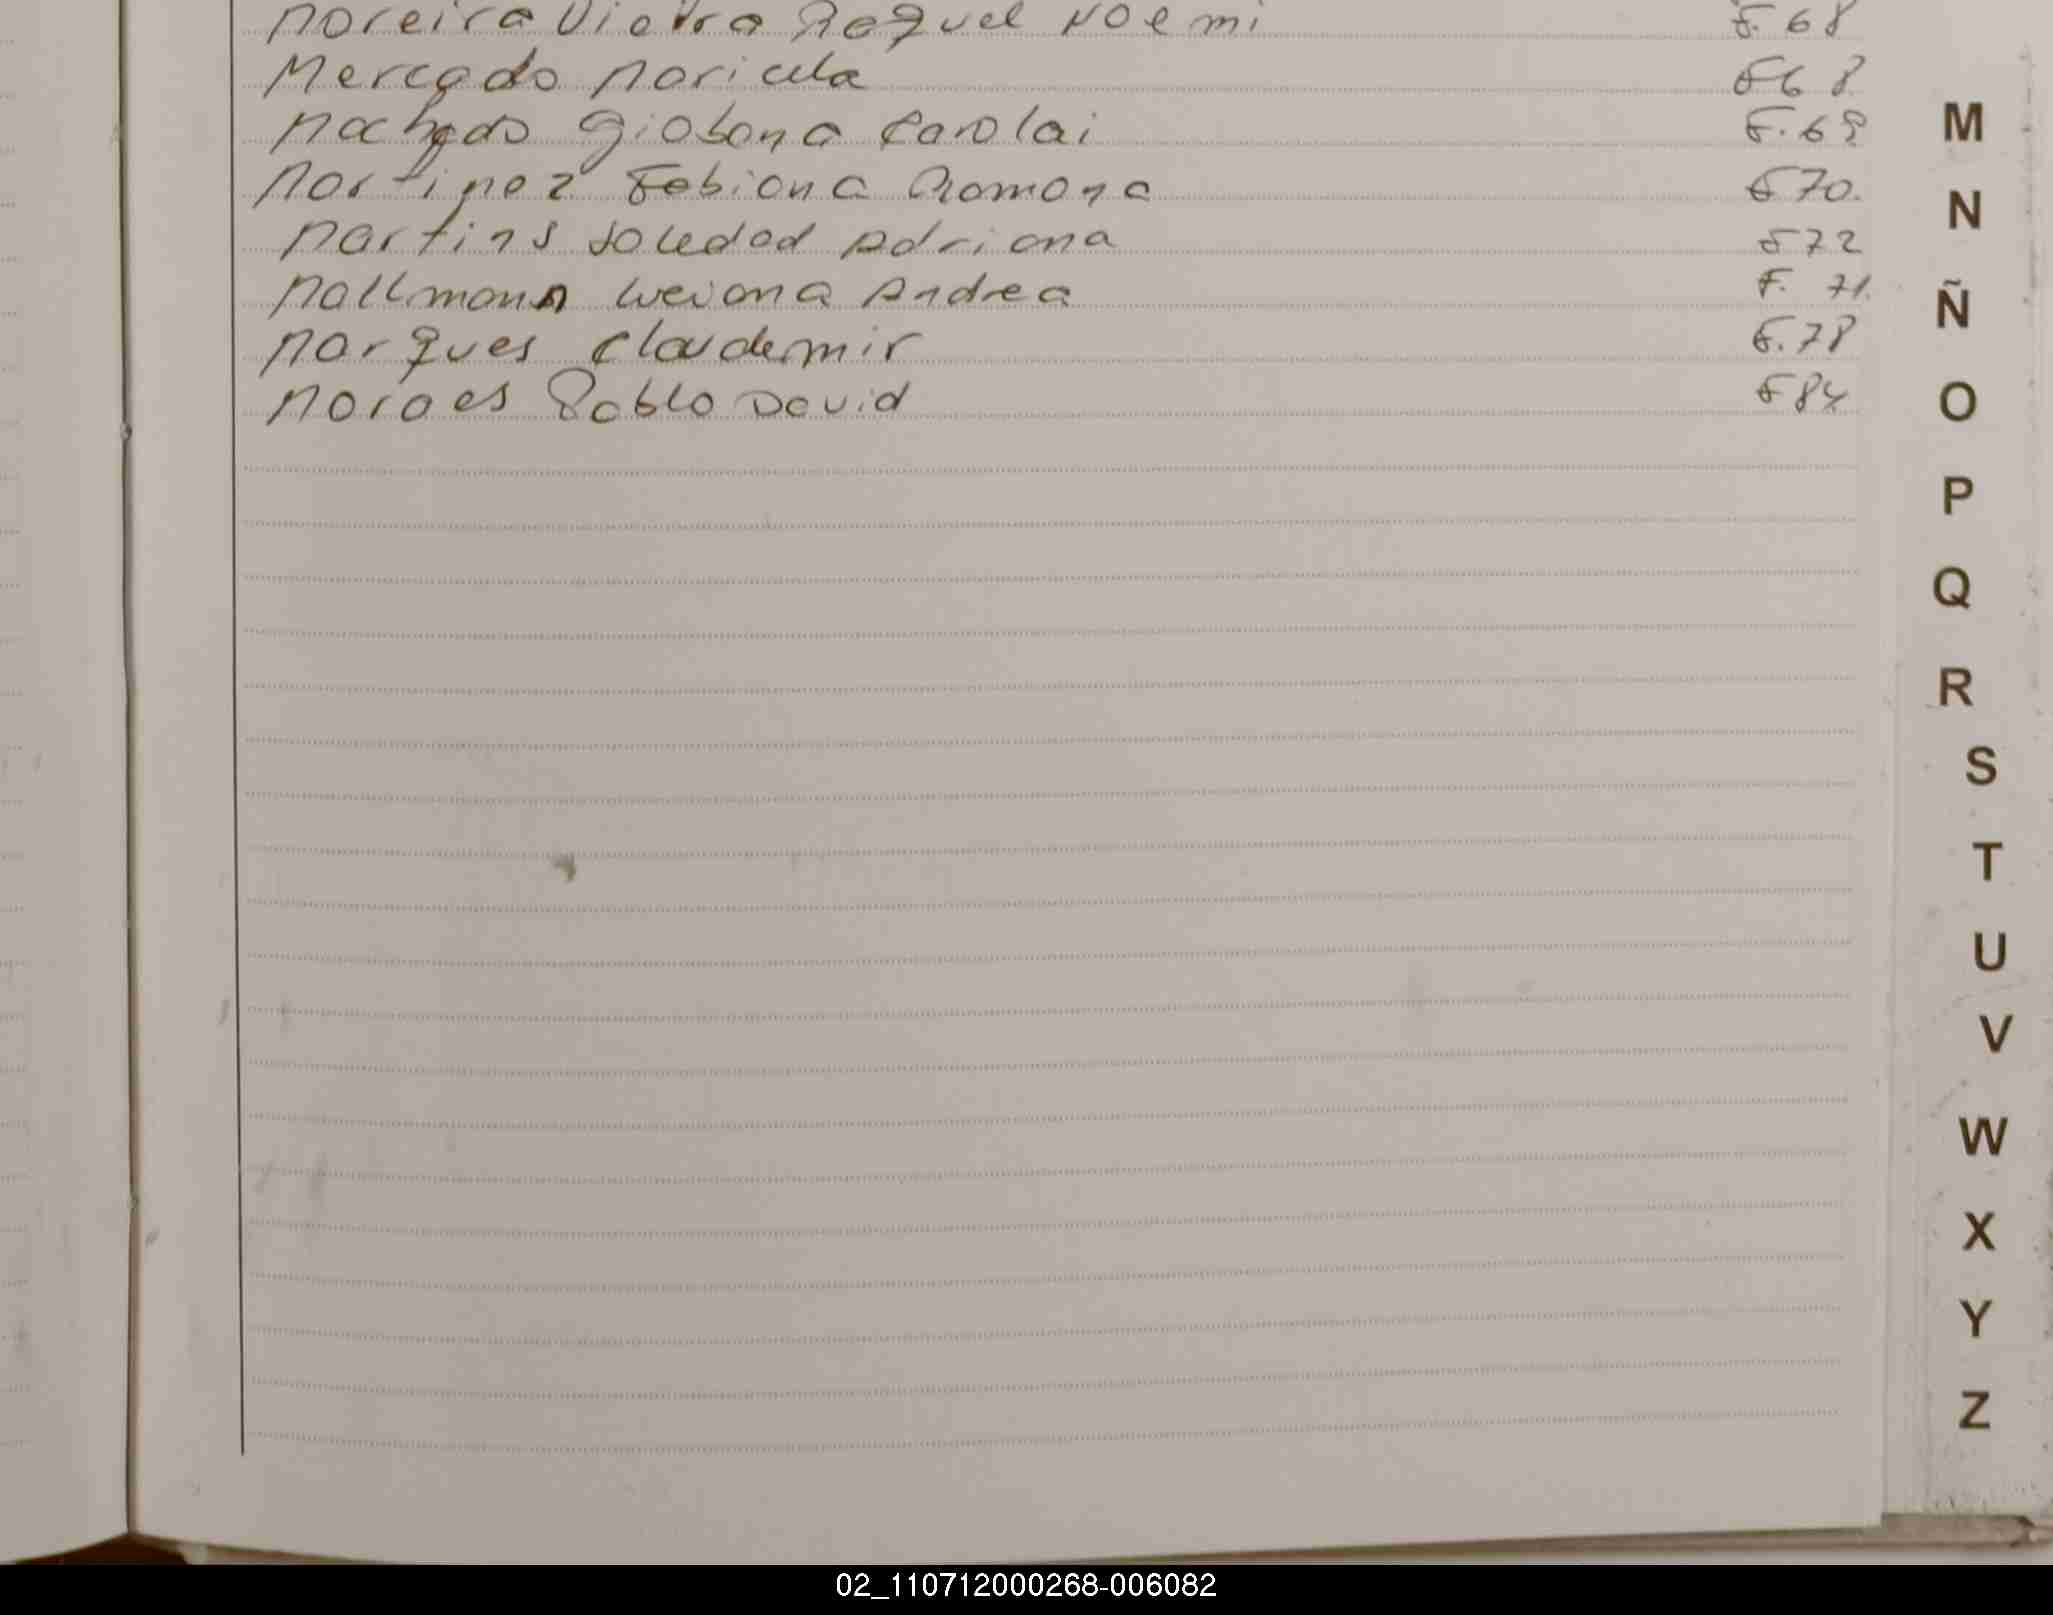 Moreira Vieira Raquel Noemi F. 68
Mercado Maricela F68
Machado Giobana Carolai F. 69
Martinez Fabiana Ramona F70.
Martins Soledad Adriana F72
Mallmann Weiana Andrea F. 71.
Marques Claudemir F. 78
Moraes Pablo David F84
M
N
Ñ
O
P
Q
R
S
T
U
V
W
X
Y
Z
02_110712000268-006082